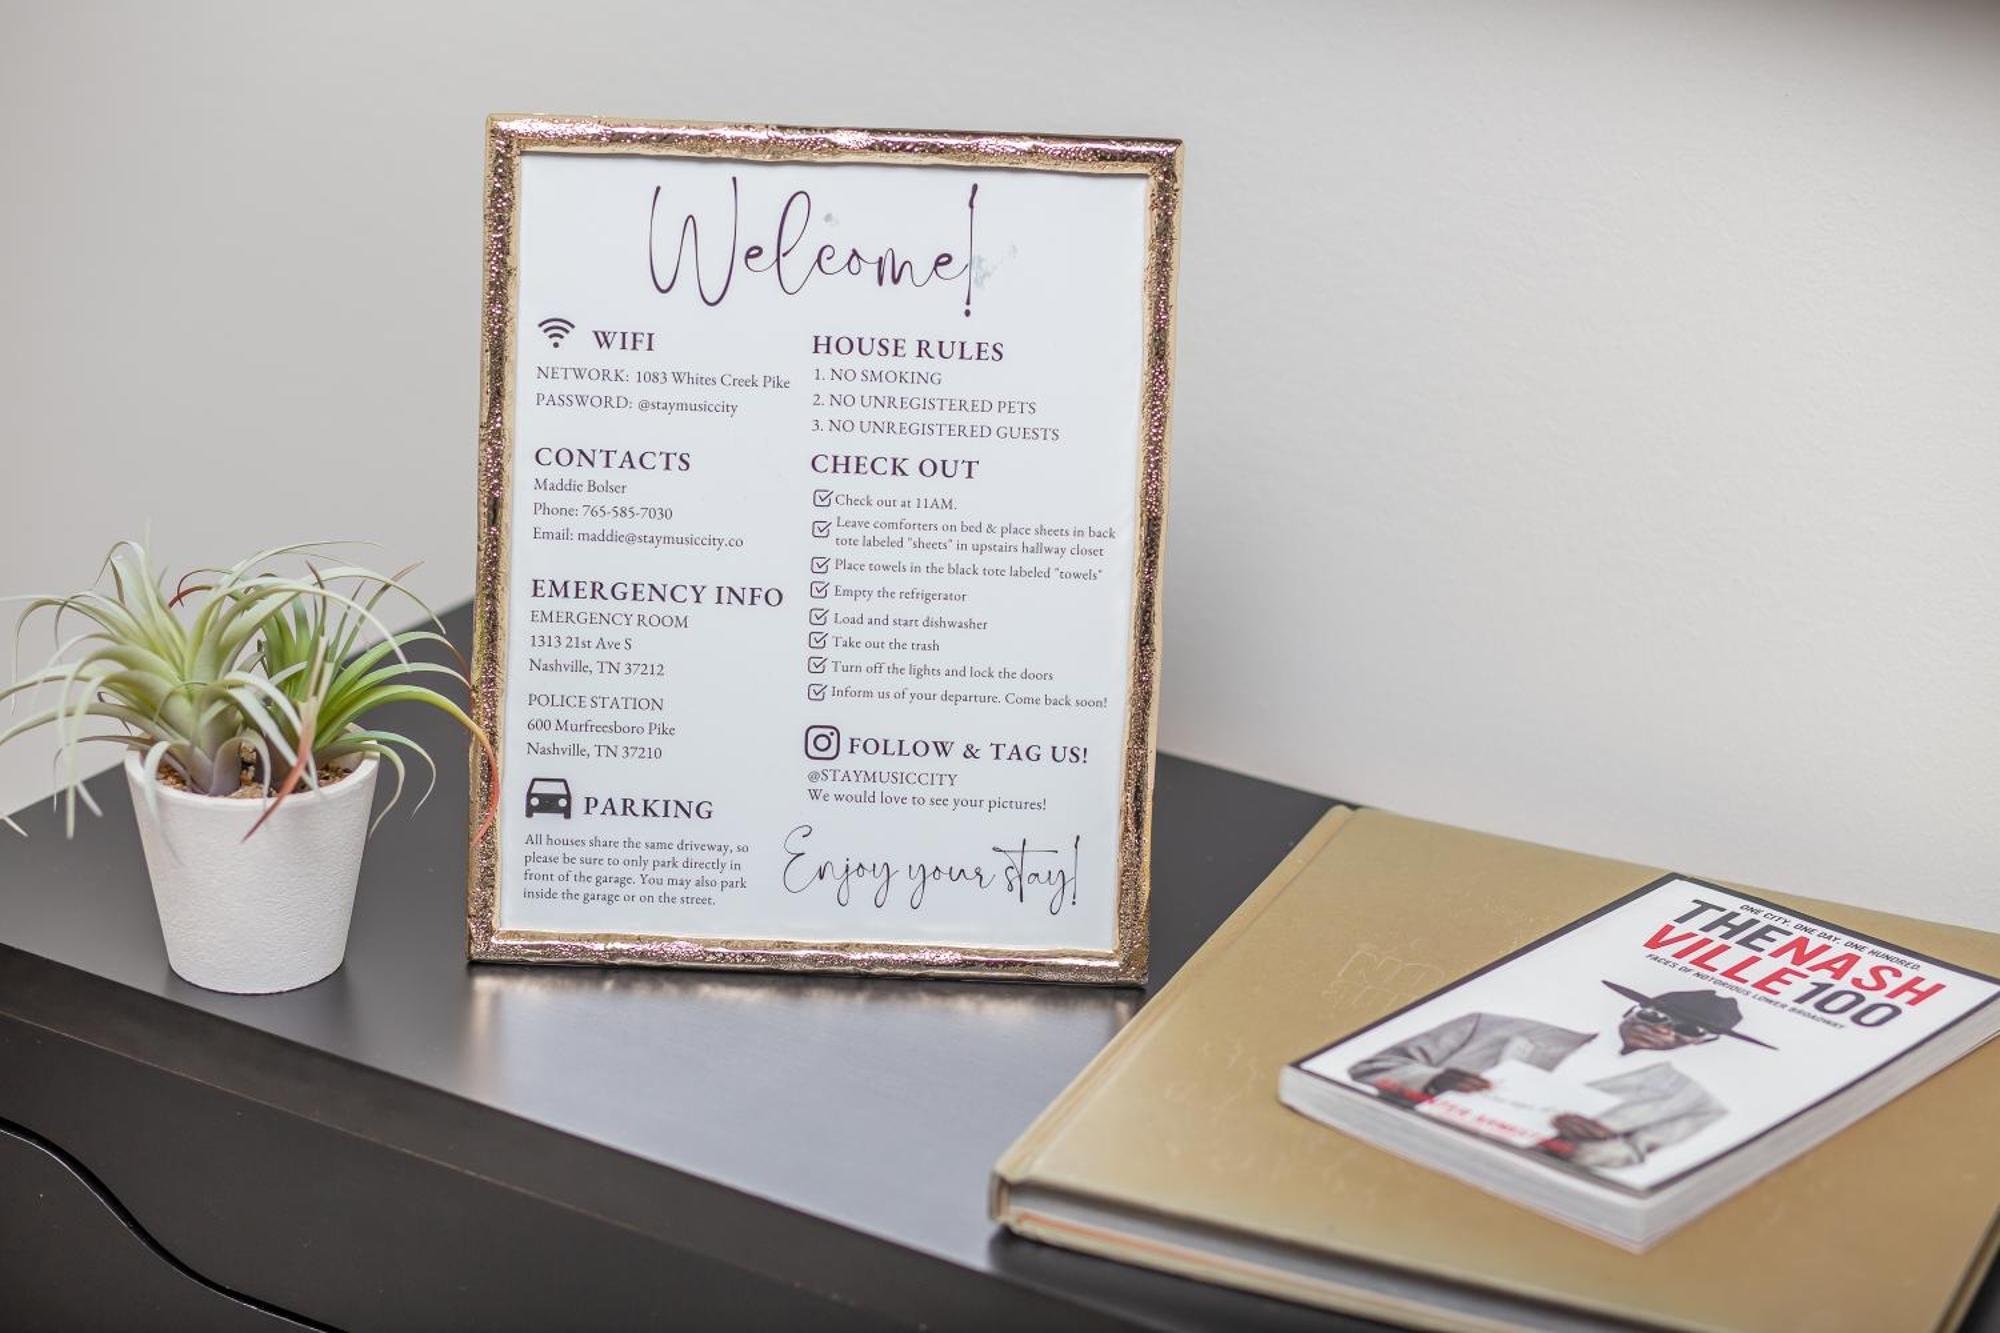 Welcome!
WIFI
NETWORK: 1083 Whites Creek Pike
PASSWORD: @staymusiccity
CONTACTS
Maddie Bolser
Phone: 765-585-7030
Email: maddie@staymusiccity.co
EMERGENCY INFO
EMERGENCY ROOM
1313 21st Ave S
Nashville, TN 37212
POLICE STATION
600 Murfreesboro Pike
Nashville, TN 37210
PARKING
All houses share the same driveway, so
please be sure to only park directly in
front of the garage. You may also park
inside the garage or on the street.
HOUSE RULES
1. NO SMOKING
2. NO UNREGISTERED PETS
3. NO UNREGISTERED GUESTS
CHECK OUT
Check out at 11AM.
Leave comforters on bed & place sheets in back
tote labeled "sheets" in upstairs hallway closet
Place towels in the black tote labeled "towels"
Empty the refrigerator
Load and start dishwasher
Take out the trash
Turn off the lights and lock the doors
Inform us of your departure. Come back soon!
FOLLOW & TAG US!
@STAYMUSICCITY
We would love to see your pictures!
Enjoy your stay!
ONE CITY. ONE DAY. ONE HUNDRED.
THE NASH
VILLE 100
FACES OF NOTORIOUS LOWER BROADWAY